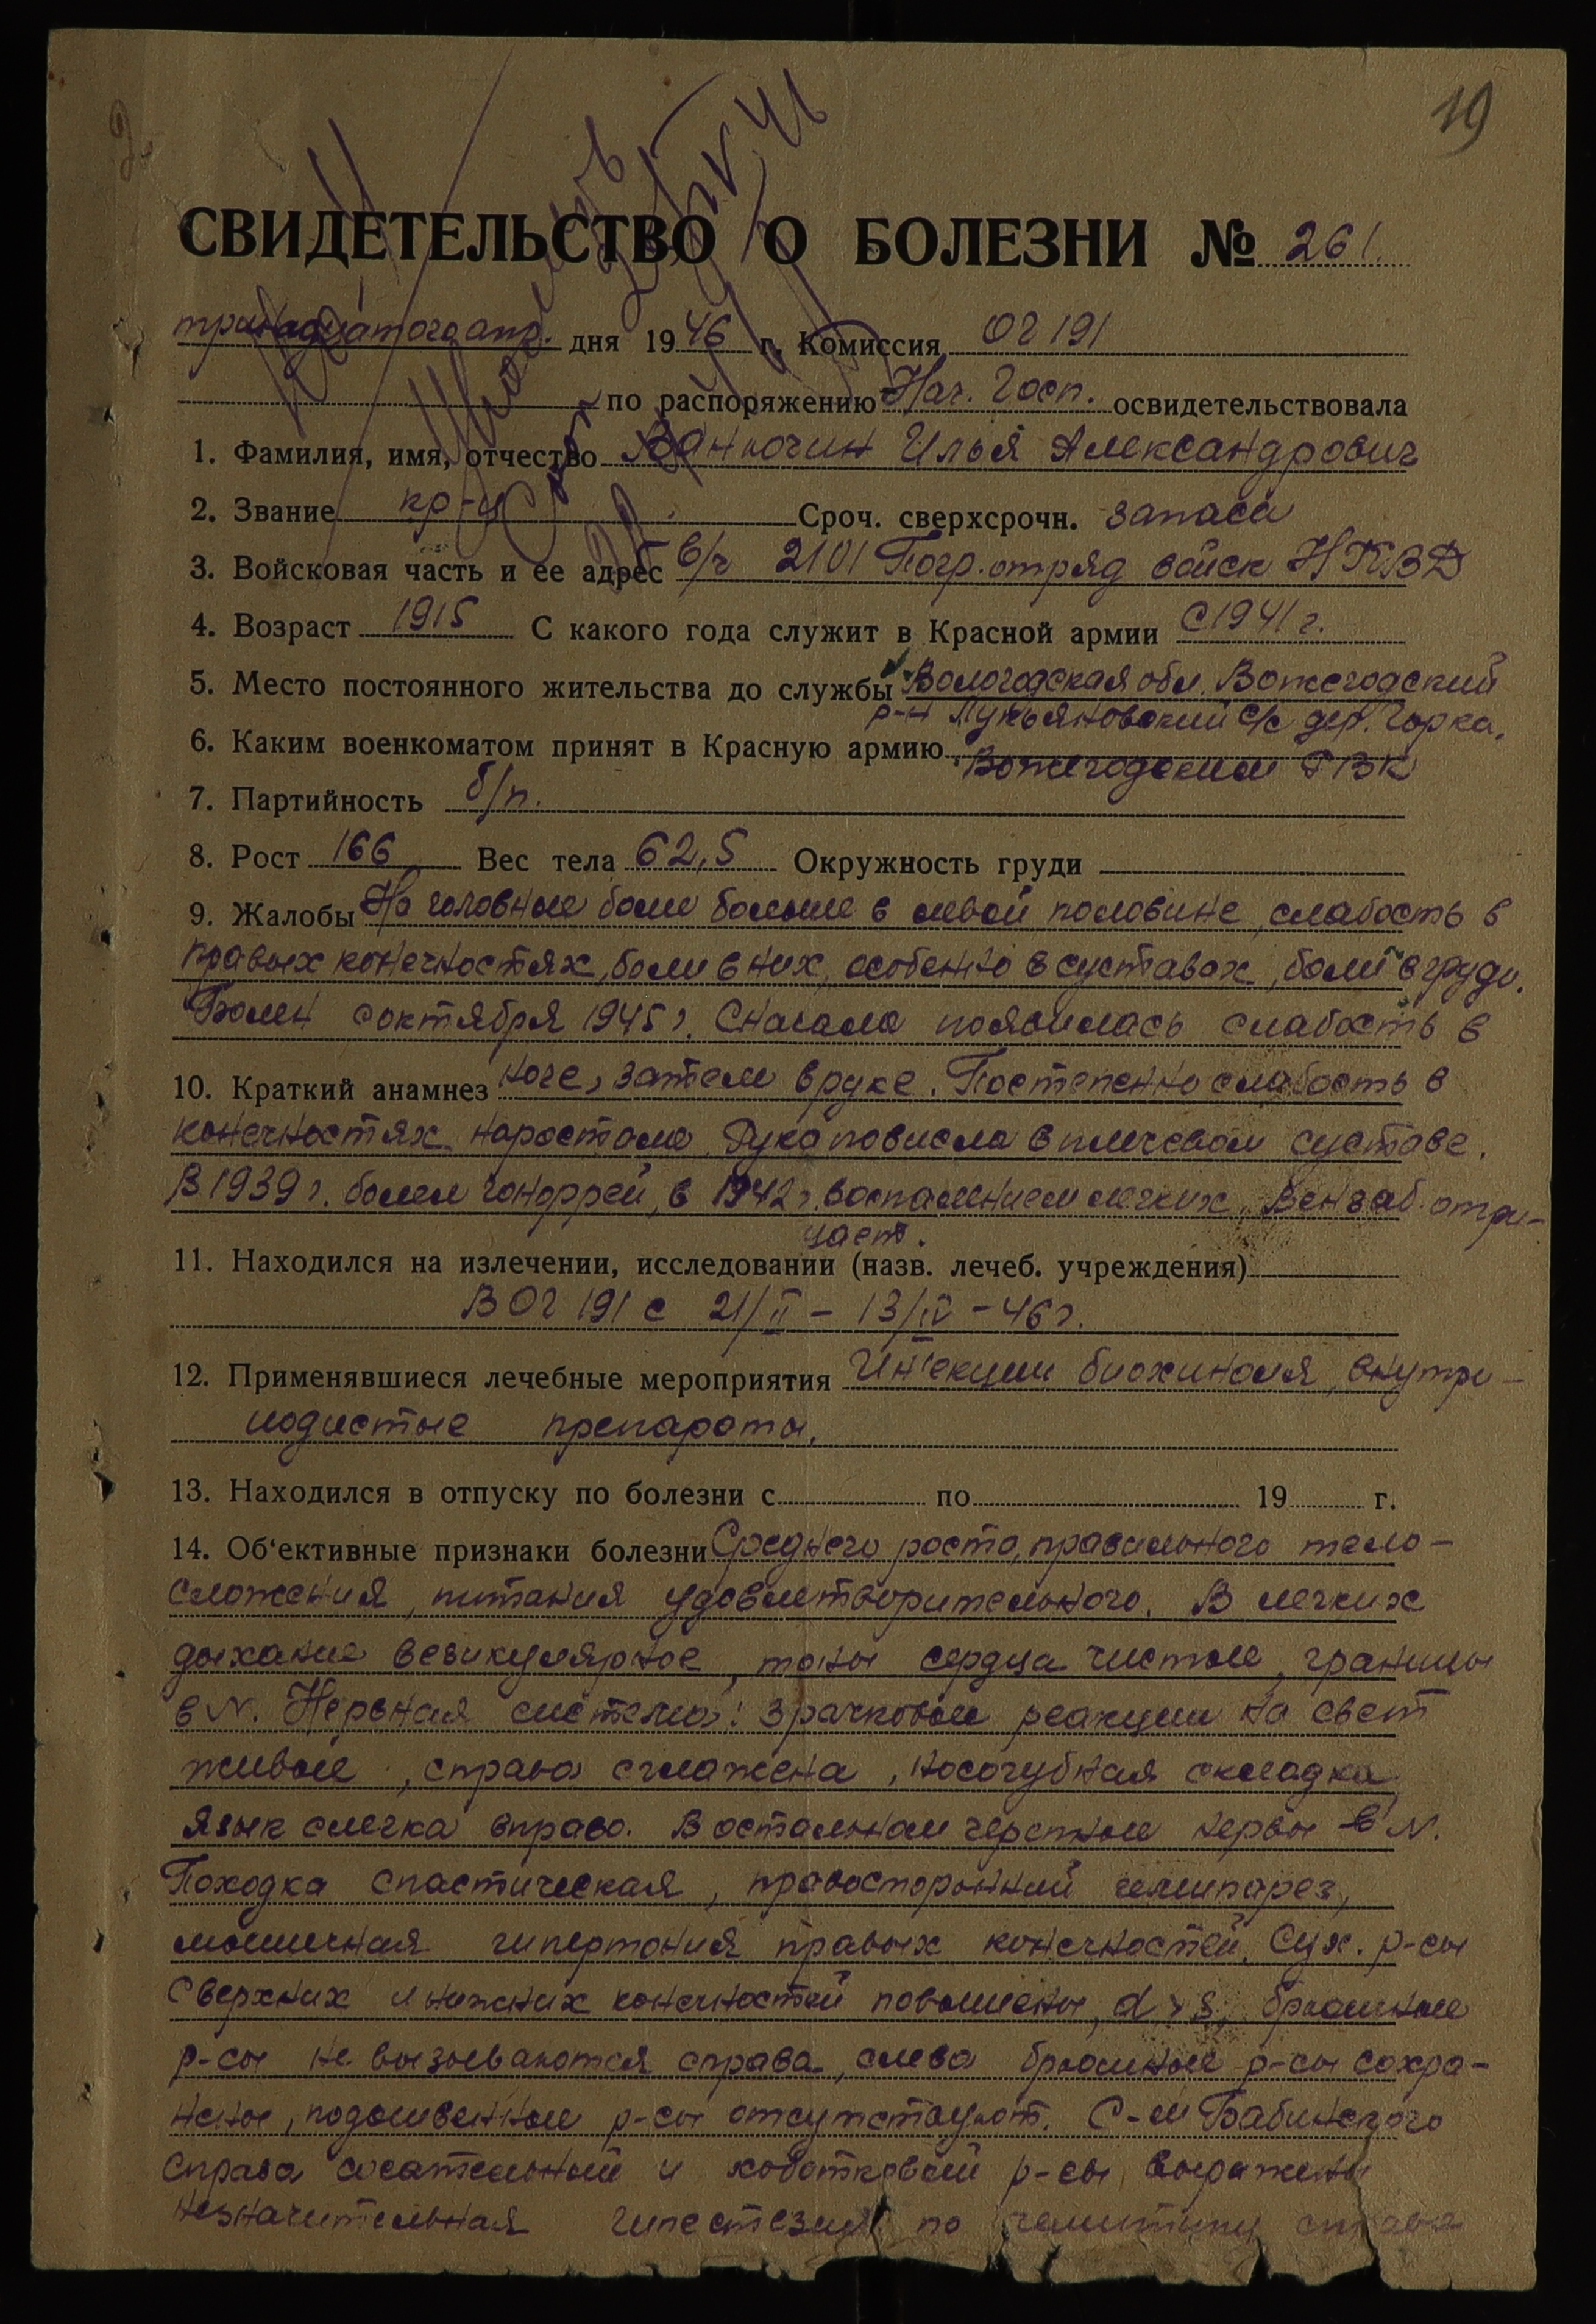 19
СВИДЕТЕЛЬСТВО О БОЛЕЗНИ № 261.
тринадцатого апр. дня 1946 г. Комиссия ОГ 191
по распоряжению Нач. Госп. освидетельствовала
1. Фамилия, имя, отчество Ванючин Илья Александрович
2. Звание кр-ц Сроч. сверхсрочн. запаса
3. Войсковая часть и ее адрес в/ч 2101 Погр. отряд войск НКВД
4. Возраст 1915 С какого года служит в Красной армии С 1941 г.
5. Место постоянного жительства до службы Вологодская обл. Вожегодский
р-н Лукьяновский с/с дер. Горка.
6. Каким военкоматом принят в Красную армию Вожегодским РВК
7. Партийность б/п.
8. Рост 166 Вес тела 62,5 Окружность груди
9. Жалобы На головные боли больше в левой половине, слабость в
правых конечностях, боли в них, особенно в суставах, боли в груди.
Болен с октября 1945 г. Сначала появилась слабость в
10. Краткий анамнез ноге, затем в руке. Постепенно слабость в
конечностях наростала. Рука повисла в плечевом суставе.
В 1939 г. болел гонорреей, в 1942 г. воспалением легких. Вен заб. отри-
цает.
11. Находился на излечении, исследовании (назв. лечеб. учреждения)
В ОГ 191 с 21/II – 13/IV – 46 г.
12. Применявшиеся лечебные мероприятия Ин'екции биохиноля, внутри –
иодистые препараты.
13. Находился в отпуску по болезни с по 19 г.
14. Об'ективные признаки болезни Среднего роста, правильного тело-
сложения, питания удовлетворительного. В легких
дыхание везикулярное, тоны сердца чистые, границы
в N. Нервная система: зрачковые реакции на свет
живые, справа сглажена, носогубная складка,
язык слегка вправо. В остальном черепные нервы в N.
Походка спастическая, правосторонний гемипарез,
мышечная гипертония правых конечностей. Сух. р-сы
с верхних и нижних конечностей повышены, d > s, брюшные
р-сы не вызываются справа, слева брюшные р-сы сохра-
нены, подошвенные р-сы отсутствуют. С-м Бабинского
справа сосательный и хоботковый р-сы выражены
незначительная гипестезия по гемитипу справа